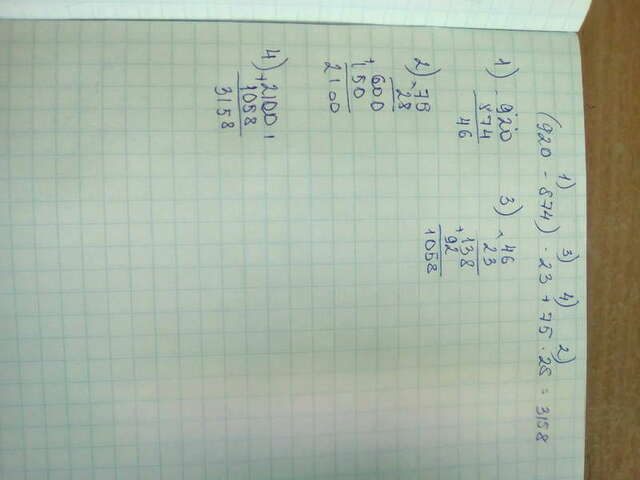 1) 3) 4) 2)
(920 - 874) · 23 + 75 · 28 = 3158
1) - 920
874
46
2) × 75
28
600
+ 150
2100
3) × 46
23
138
+ 92
1058
4) + 2100
1058
3158